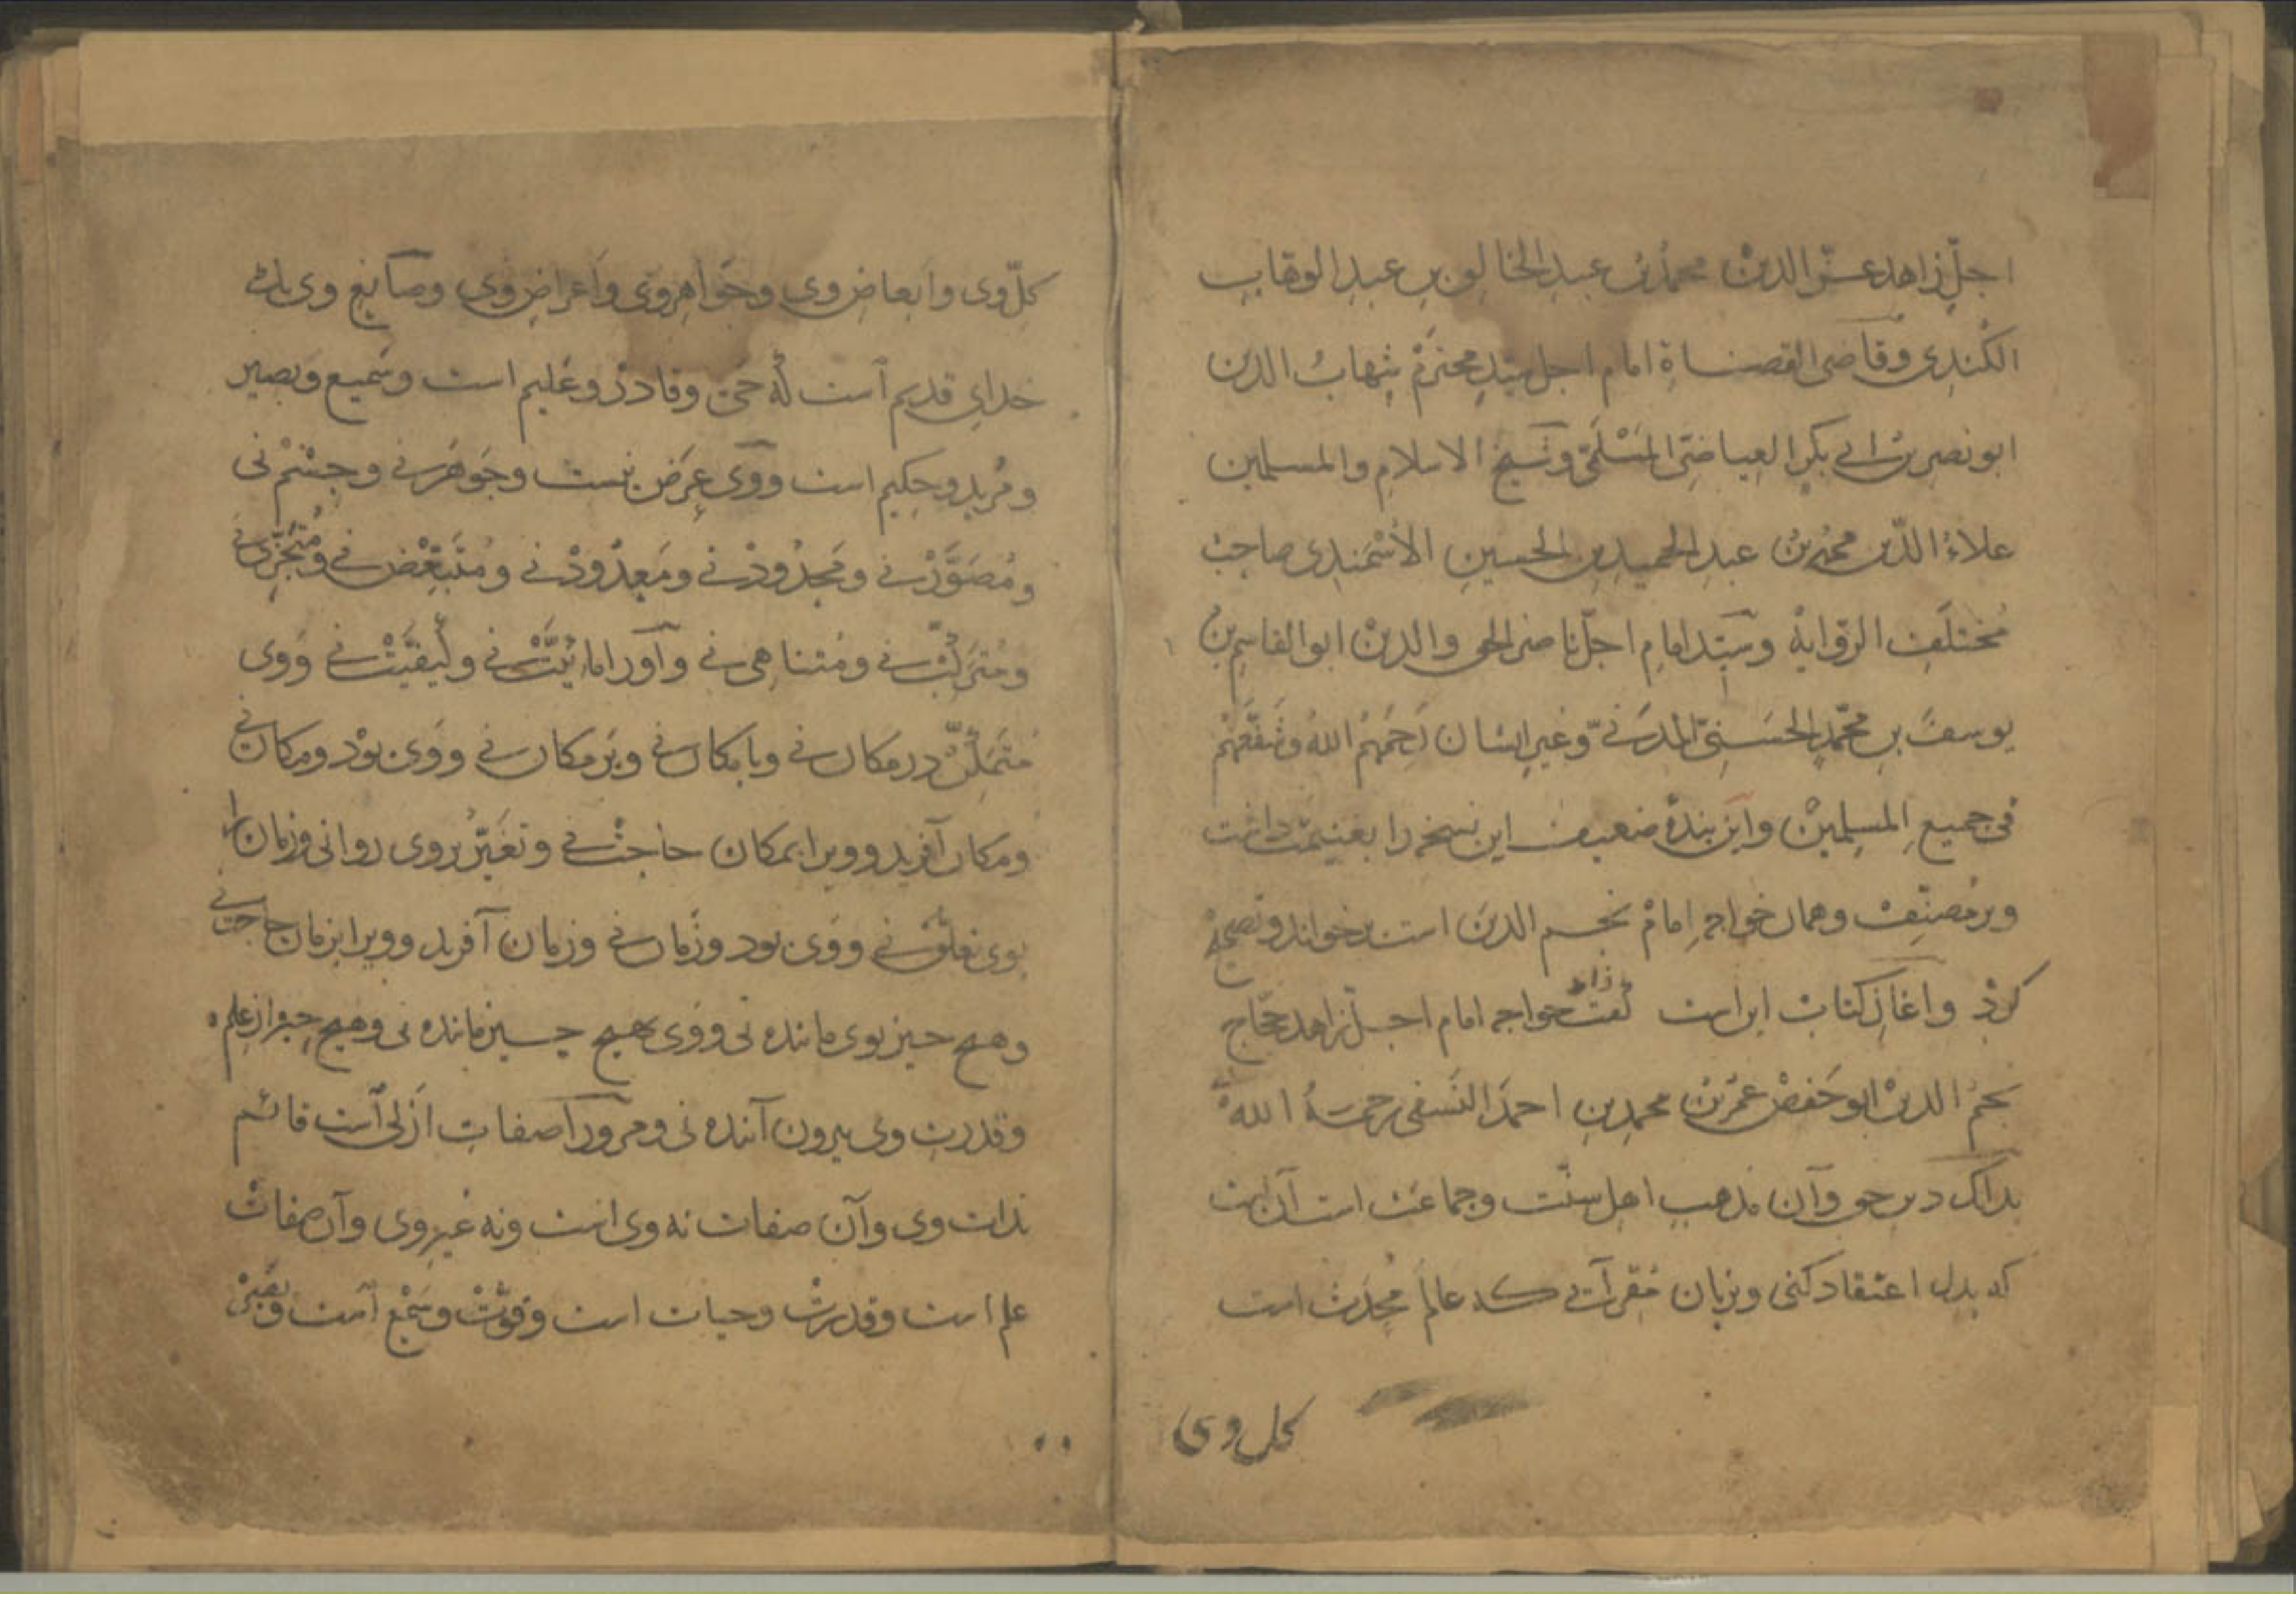 اجلّ زاهد عزّ الدین محمّد بن عبد الخالق بن عبد الوهّاب
الکُندی وقاضی القضاة امام اجل سیّد محترم شهاب الدین
ابو نصر بن ابی بکر العیاضیّ المَسْلَمیّ وشیخ الاسلام والمسلمین
علاءُ الدّین محمد بن عبد الحمید بن الحسین الاُسْمَندی صاحب
مختلف الرّوایة وسیّد امام اجلّ ناصر الحق والدین ابو القاسم بن
یوسف بن محمّد الحسنیّ المدنیّ وغیر ایشان رَحِمَهُمُ اللهُ وشفّعهم
فی جمیع المسلمین واین بندهٔ ضعیف این نسخه را بغنیمت داشت
وبر مصنّف وهمان خواجه امام نجم الدین است برخواند وتصحیح
کرد واغاز کتاب این است گفت خواجه امام اجلّ زاهد حجّاج
نجم الدین ابو حفص عمر بن محمد بن احمد النسفی رحمة الله
بدانک دین حق وآن مذهب اهل سنّت وجماعت است آن است
که بدل اعتقاد کنی وبزبان مقر آئی که عالم مُحدَث است
کل وی
کلّ وی وابعاض وی وجواهر وی واعراض وی وصانع وی یک
خدای قدیم است که حی وقادر وعلیم است وسمیع وبصیر
ومُرید وحکیم است ووی عرض نیست وجوهر نی وجسم نی
ومُصَوَّر نی ومحدُود نی ومعدُود نی ومُتَبَعِّض نی ومُتَجَزّی نی
ومترکّب نی ومتناهی نی واورا مائیّت نی وکیفیّت نی ووی
متمکّن در مکان نی وبا مکان نی وبر مکان نی ووی بود ومکان نی
ومکان آفرید وویرا بمکان حاجت نی وتغیّر بر وی روا نی وزمان را
بوی تعلّق نی ووی بود وزمان نی وزمان آفرید وویرا بزمان حاجت نی
وهیچ چیز بوی مانده نی ووی بهیچ چیز مانده نی وهیچ چیز از علم
وقدرت وی بیرون آینده نی ومر ورا صفات ازلی است قائم
بذات وی وآن صفات نه وی است ونه غیر وی وآن صفات
علم است وقدرت وحیات است وقوّت وسمع است وبصر